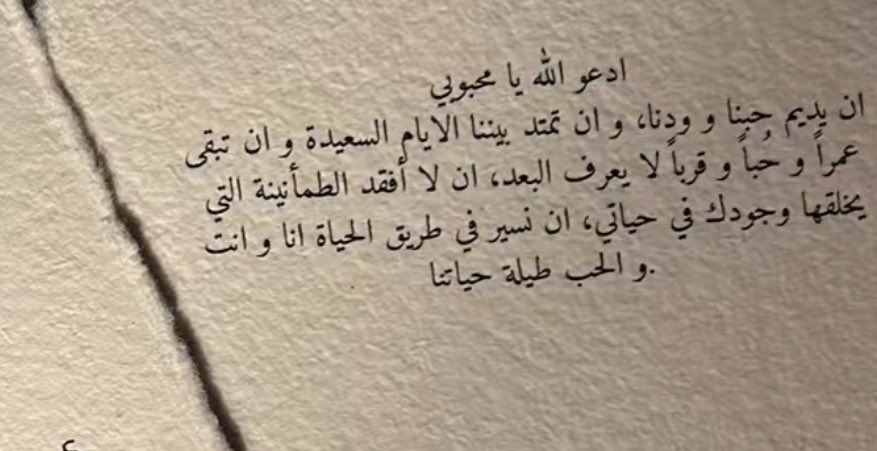 ادعو الله يا محبوبي
ان يديم حبنا و ودنا، و ان تمتد بيننا الايام السعيدة و ان تبقى
عمراً و حُباً و قرباً لا يعرف البعد، ان لا أفقد الطمأنينة التي
يخلقها وجودك في حياتي، ان نسير في طريق الحياة انا و انت
و الحب طيلة حياتنا.